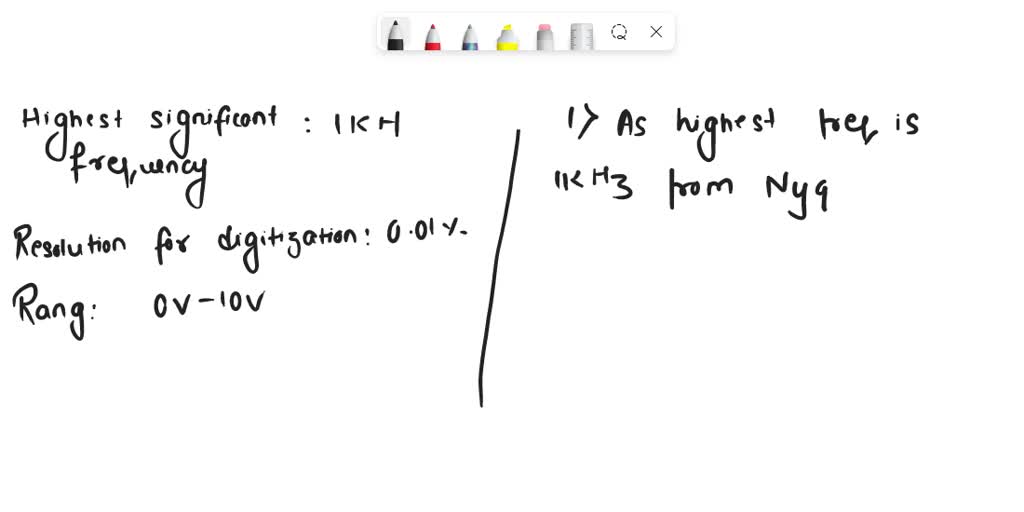 Highest significant : 1KH
frequency
Resolution for digitization: 0.01%.
Rang: 0V-10V
1) As highest freq is
1KHz from Nyq